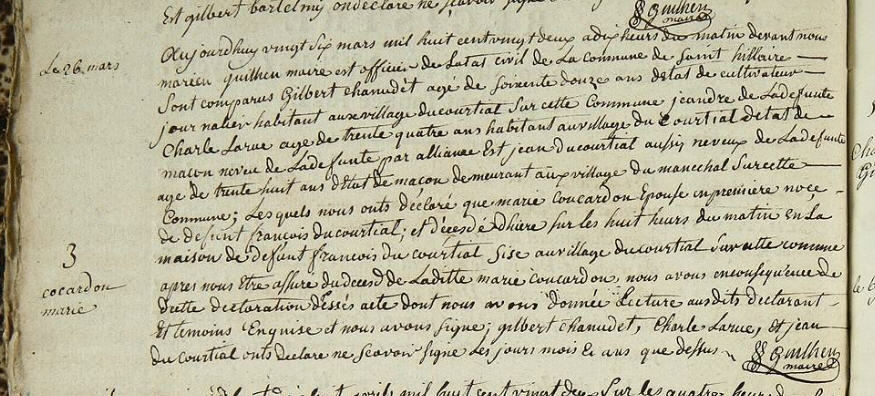 Est gilbert bartelmy ondeclare ne sçavoir signe
S Guilhen
maire
Le 26 mars
Aujourdhuy vingt six mars mil huit cent vingt deux a dix heurs du matin devant nous
marien guilhen maire est officier de Latat civil de La commune de Saint hillaire
Sont comparus Gilbert chanudet agé de Soixente douze ans detat de cultivateur
journalier habitant aux village du courtial Sur cette Commune jeandre de Ladefunte
Charle Larue age de trente quatre ans habitant au village du Courtial detat de
macon neveu de Ladefunte par alliance Est jean du courtial aussy neveux de Ladefunte
age de trente huit ans d'Etat de macon demeurant aux village du marechal Sur cette
Commune; Lesquels nous onts declaré que marie coucardon Epouse en premiere noçe
de defunt françois du courtial; et décédé d'hiere sur les huit heurs du matin en La
maison de defunt francois du courtial Sise au village du courtial Sur cette commune
3
cocardon
marie
apres nous Etre assure du deced de Laditte marie coucardon, nous avons en consequence de
dette declaration dressés acte dont nous avons donnée Lecture ausdits declarant
Et temoins Enquise et nous avons signe; gilbert chanudet, Charle Larue, et jean
du courtial onts declare ne Scavoir signe Les jours mois & ans que dessus
S Guilhen
maire
avril mil huit cent vingt deux Sur les quatre heure